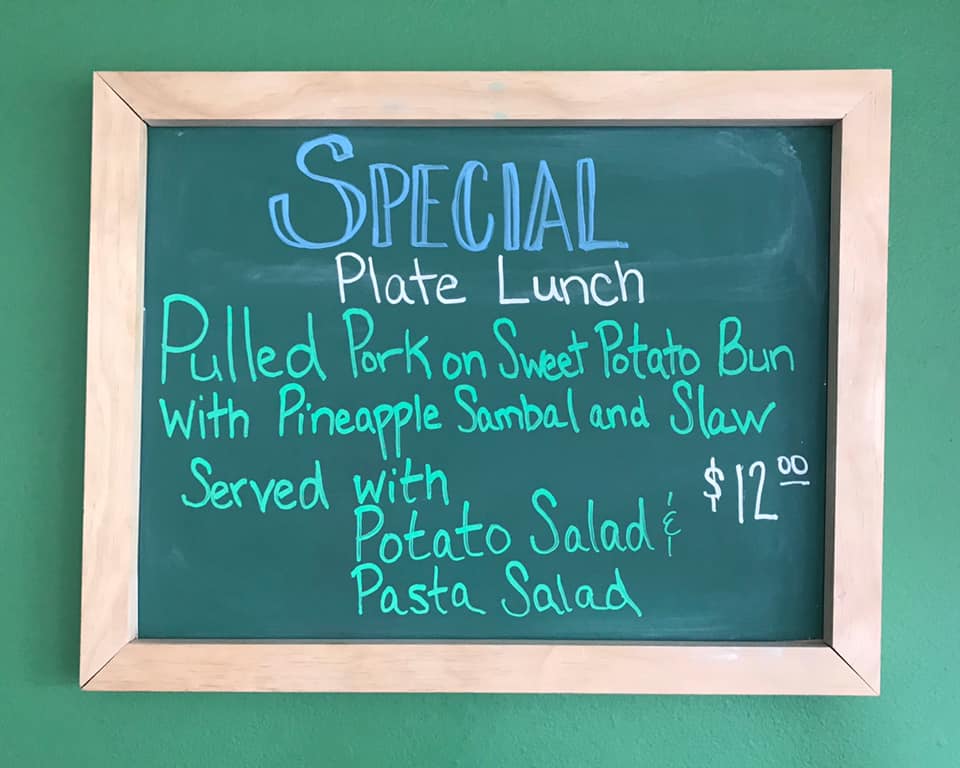 SPECIAL
Plate Lunch
Pulled Pork on Sweet Potato Bun
with Pineapple Sambal and Slaw
Served with $12.00
Potato Salad &
Pasta Salad